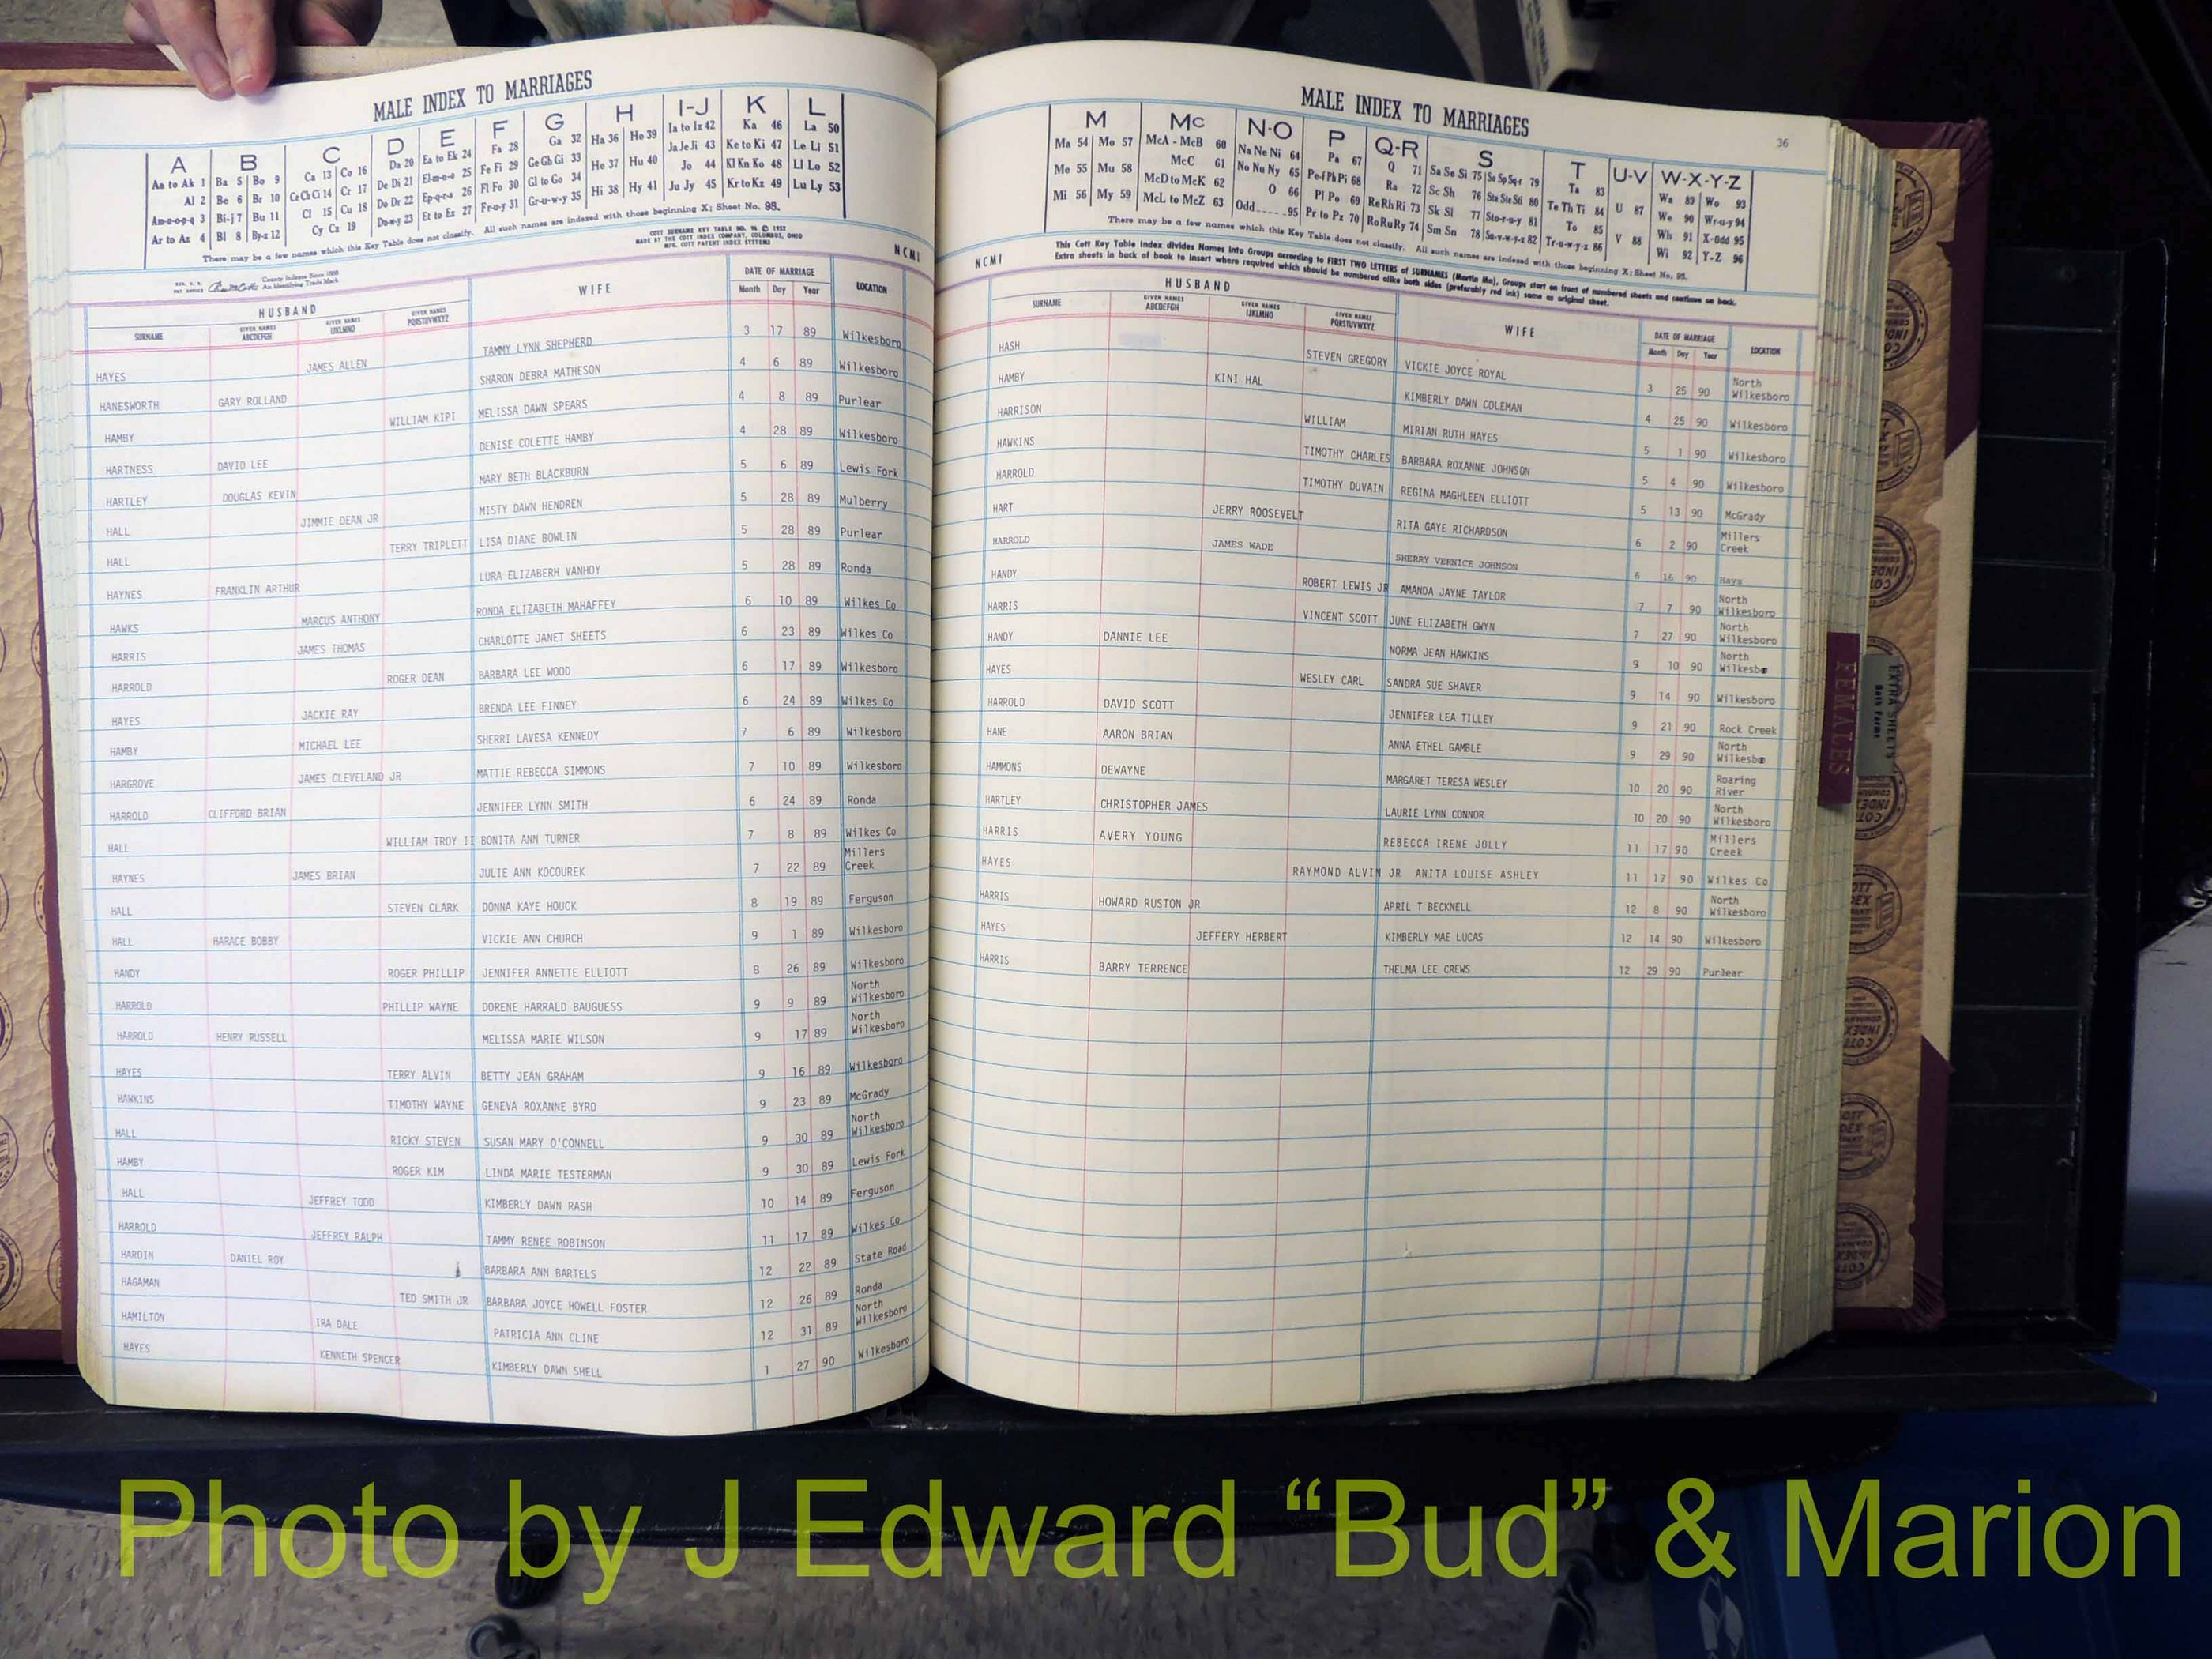 MALE INDEX TO MARRIAGES
A B C D E F G H I-J K L
Aa to Ak 1 Ba 5 Bo 9 Ca 13 Co 16 Da 20 Ea to Ek 24 Fa 28 Ga 32 Ha 36 Ho 39 Ia to Iz 42 Ka 46 La 50
Al 2 Be 6 Br 10 Ce Ch Ci 14 Cr 17 De Di 21 El-m-n-o 25 Fe Fi 29 Ge Gh Gi 33 He 37 Hu 40 Ja Je Ji 43 Ke to Ki 47 Le Li 51
Am-n-o-p-q 3 Bi-j 7 Bu 11 Cl 15 Cu 18 Do Dr 22 Ep-q-r-s 26 Fl Fo 30 Gl to Go 34 Hi 38 Hy 41 Jo 44 Kl Kn Ko 48 Ll Lo 52
Ar to Az 4 Bl 8 By-z 12 Cy Cz 19 Du-w-y 23 Et to Ez 27 Fr-u-y 31 Gr-u-w-y 35 Ju Jy 45 Kr to Kz 49 Lu Ly 53
There may be a few names which this Key Table does not classify. All such names are indexed with those beginning X; Sheet No. 95.
COTT SURNAME KEY TABLE NO. 96 © 1952
MADE BY THE COTT INDEX COMPANY, COLUMBUS, OHIO
MFG. COTT PATENT INDEX SYSTEMS
NCMI
County Indexes Since 1888
An Identifying Trade Mark
HUSBAND WIFE DATE OF MARRIAGE LOCATION
SURNAME GIVEN NAMES ABCDEFGH GIVEN NAMES IJKLMNO GIVEN NAMES PQRSTUVWXYZ Month Day Year
HAYES JAMES ALLEN TAMMY LYNN SHEPHERD 3 17 89 Wilkesboro
HANESWORTH GARY ROLLAND SHARON DEBRA MATHESON 4 6 89 Wilkesboro
HAMBY WILLIAM KIPI MELISSA DAWN SPEARS 4 8 89 Purlear
HARTNESS DAVID LEE DENISE COLETTE HAMBY 4 28 89 Wilkesboro
HARTLEY DOUGLAS KEVIN MARY BETH BLACKBURN 5 6 89 Lewis Fork
HALL JIMMIE DEAN JR MISTY DAWN HENDREN 5 28 89 Mulberry
HALL TERRY TRIPLETT LISA DIANE BOWLIN 5 28 89 Purlear
HAYNES FRANKLIN ARTHUR LURA ELIZABERH VANHOY 5 28 89 Ronda
HAWKS MARCUS ANTHONY RONDA ELIZABETH MAHAFFEY 6 10 89 Wilkes Co
HARRIS JAMES THOMAS CHARLOTTE JANET SHEETS 6 23 89 Wilkes Co
HARROLD ROGER DEAN BARBARA LEE WOOD 6 17 89 Wilkesboro
HAYES JACKIE RAY BRENDA LEE FINNEY 6 24 89 Wilkes Co
HAMBY MICHAEL LEE SHERRI LAVESA KENNEDY 7 6 89 Wilkesboro
HARGROVE JAMES CLEVELAND JR MATTIE REBECCA SIMMONS 7 10 89 Wilkesboro
HARROLD CLIFFORD BRIAN JENNIFER LYNN SMITH 6 24 89 Ronda
HALL WILLIAM TROY II BONITA ANN TURNER 7 8 89 Wilkes Co
HAYNES JAMES BRIAN JULIE ANN KOCOUREK 7 22 89 Millers Creek
HALL STEVEN CLARK DONNA KAYE HOUCK 8 19 89 Ferguson
HALL HARACE BOBBY VICKIE ANN CHURCH 9 1 89 Wilkesboro
HANDY ROGER PHILLIP JENNIFER ANNETTE ELLIOTT 8 26 89 Wilkesboro
HARROLD PHILLIP WAYNE DORENE HARRALD BAUGUESS 9 9 89 North Wilkesboro
HARROLD HENRY RUSSELL MELISSA MARIE WILSON 9 17 89 North Wilkesboro
HAYES TERRY ALVIN BETTY JEAN GRAHAM 9 16 89 Wilkesboro
HAWKINS TIMOTHY WAYNE GENEVA ROXANNE BYRD 9 23 89 McGrady
HALL RICKY STEVEN SUSAN MARY O'CONNELL 9 30 89 North Wilkesboro
HAMBY ROGER KIM LINDA MARIE TESTERMAN 9 30 89 Lewis Fork
HALL JEFFREY TODD KIMBERLY DAWN RASH 10 14 89 Ferguson
HARROLD JEFFREY RALPH TAMMY RENEE ROBINSON 11 17 89 Wilkes Co
HARDIN DANIEL ROY BARBARA ANN BARTELS 12 22 89 State Road
HAGAMAN TED SMITH JR BARBARA JOYCE HOWELL FOSTER 12 26 89 Ronda
HAMILTON IRA DALE PATRICIA ANN CLINE 12 31 89 North Wilkesboro
HAYES KENNETH SPENCER KIMBERLY DAWN SHELL 1 27 90 Wilkesboro
MALE INDEX TO MARRIAGES
36
M Mc N-O P Q-R S T U-V W-X-Y-Z
Ma 54 Mo 57 McA - McB 60 Na Ne Ni 64 Pa 67 Q 71 Sa Se Si 75 So Sp Sq-r 79 Ta 83 Wa 89 Wo 93
Me 55 Mu 58 McC 61 No Nu Ny 65 Pe-f Ph Pi 68 Ra 72 Sc Sh 76 Sta Ste Sti 80 Te Th Ti 84 U 87 We 90 Wr-u-y 94
Mi 56 My 59 McD to McK 62 O 66 Pl Po 69 Re Rh Ri 73 Sk Sl 77 Sto-r-u-y 81 To 85 Wh 91 X-Odd 95
McL to McZ 63 Odd 95 Pr to Pz 70 Ro Ru Ry 74 Sm Sn 78 Su-v-w-y-z 82 Tr-u-w-y-z 86 V 88 Wi 92 Y-Z 96
There may be a few names which this Key Table does not classify. All such names are indexed with those beginning X; Sheet No. 95.
This Cott Key Table Index divides Names into Groups according to FIRST TWO LETTERS of SURNAMES (Martin Ma), Groups start on front of numbered sheets and continue on back.
Extra sheets in back of book to insert where required which should be numbered alike both sides (preferably red ink) same as original sheet.
NCMI
HUSBAND WIFE DATE OF MARRIAGE LOCATION
SURNAME GIVEN NAMES ABCDEFGH GIVEN NAMES IJKLMNO GIVEN NAMES PQRSTUVWXYZ Month Day Year
HASH STEVEN GREGORY VICKIE JOYCE ROYAL 3 25 90 North Wilkesboro
HAMBY KINI HAL KIMBERLY DAWN COLEMAN 4 25 90 Wilkesboro
HARRISON WILLIAM MIRIAN RUTH HAYES 5 1 90 Wilkesboro
HAWKINS TIMOTHY CHARLES BARBARA ROXANNE JOHNSON 5 4 90 Wilkesboro
HARROLD TIMOTHY DUVAIN REGINA MAGHLEEN ELLIOTT 5 13 90 McGrady
HART JERRY ROOSEVELT RITA GAYE RICHARDSON 6 2 90 Millers Creek
HARROLD JAMES WADE SHERRY VERNICE JOHNSON 6 16 90 Hays
HANDY ROBERT LEWIS JR AMANDA JAYNE TAYLOR 7 7 90 North Wilkesboro
HARRIS VINCENT SCOTT JUNE ELIZABETH GWYN 7 27 90 North Wilkesboro
HANDY DANNIE LEE NORMA JEAN HAWKINS 9 10 90 North Wilkesbo
HAYES WESLEY CARL SANDRA SUE SHAVER 9 14 90 Wilkesboro
HARROLD DAVID SCOTT JENNIFER LEA TILLEY 9 21 90 Rock Creek
HANE AARON BRIAN ANNA ETHEL GAMBLE 9 29 90 North Wilkesbo
HAMMONS DEWAYNE MARGARET TERESA WESLEY 10 20 90 Roaring River
HARTLEY CHRISTOPHER JAMES LAURIE LYNN CONNOR 10 20 90 North Wilkesboro
HARRIS AVERY YOUNG REBECCA IRENE JOLLY 11 17 90 Millers Creek
HAYES RAYMOND ALVIN JR ANITA LOUISE ASHLEY 11 17 90 Wilkes Co
HARRIS HOWARD RUSTON JR APRIL T BECKNELL 12 8 90 North Wilkesboro
HAYES JEFFERY HERBERT KIMBERLY MAE LUCAS 12 14 90 Wilkesboro
HARRIS BARRY TERRENCE THELMA LEE CREWS 12 29 90 Purlear
FEMALES
EXTRA SHEETS
Both Forms
Photo by J Edward “Bud” & Marion